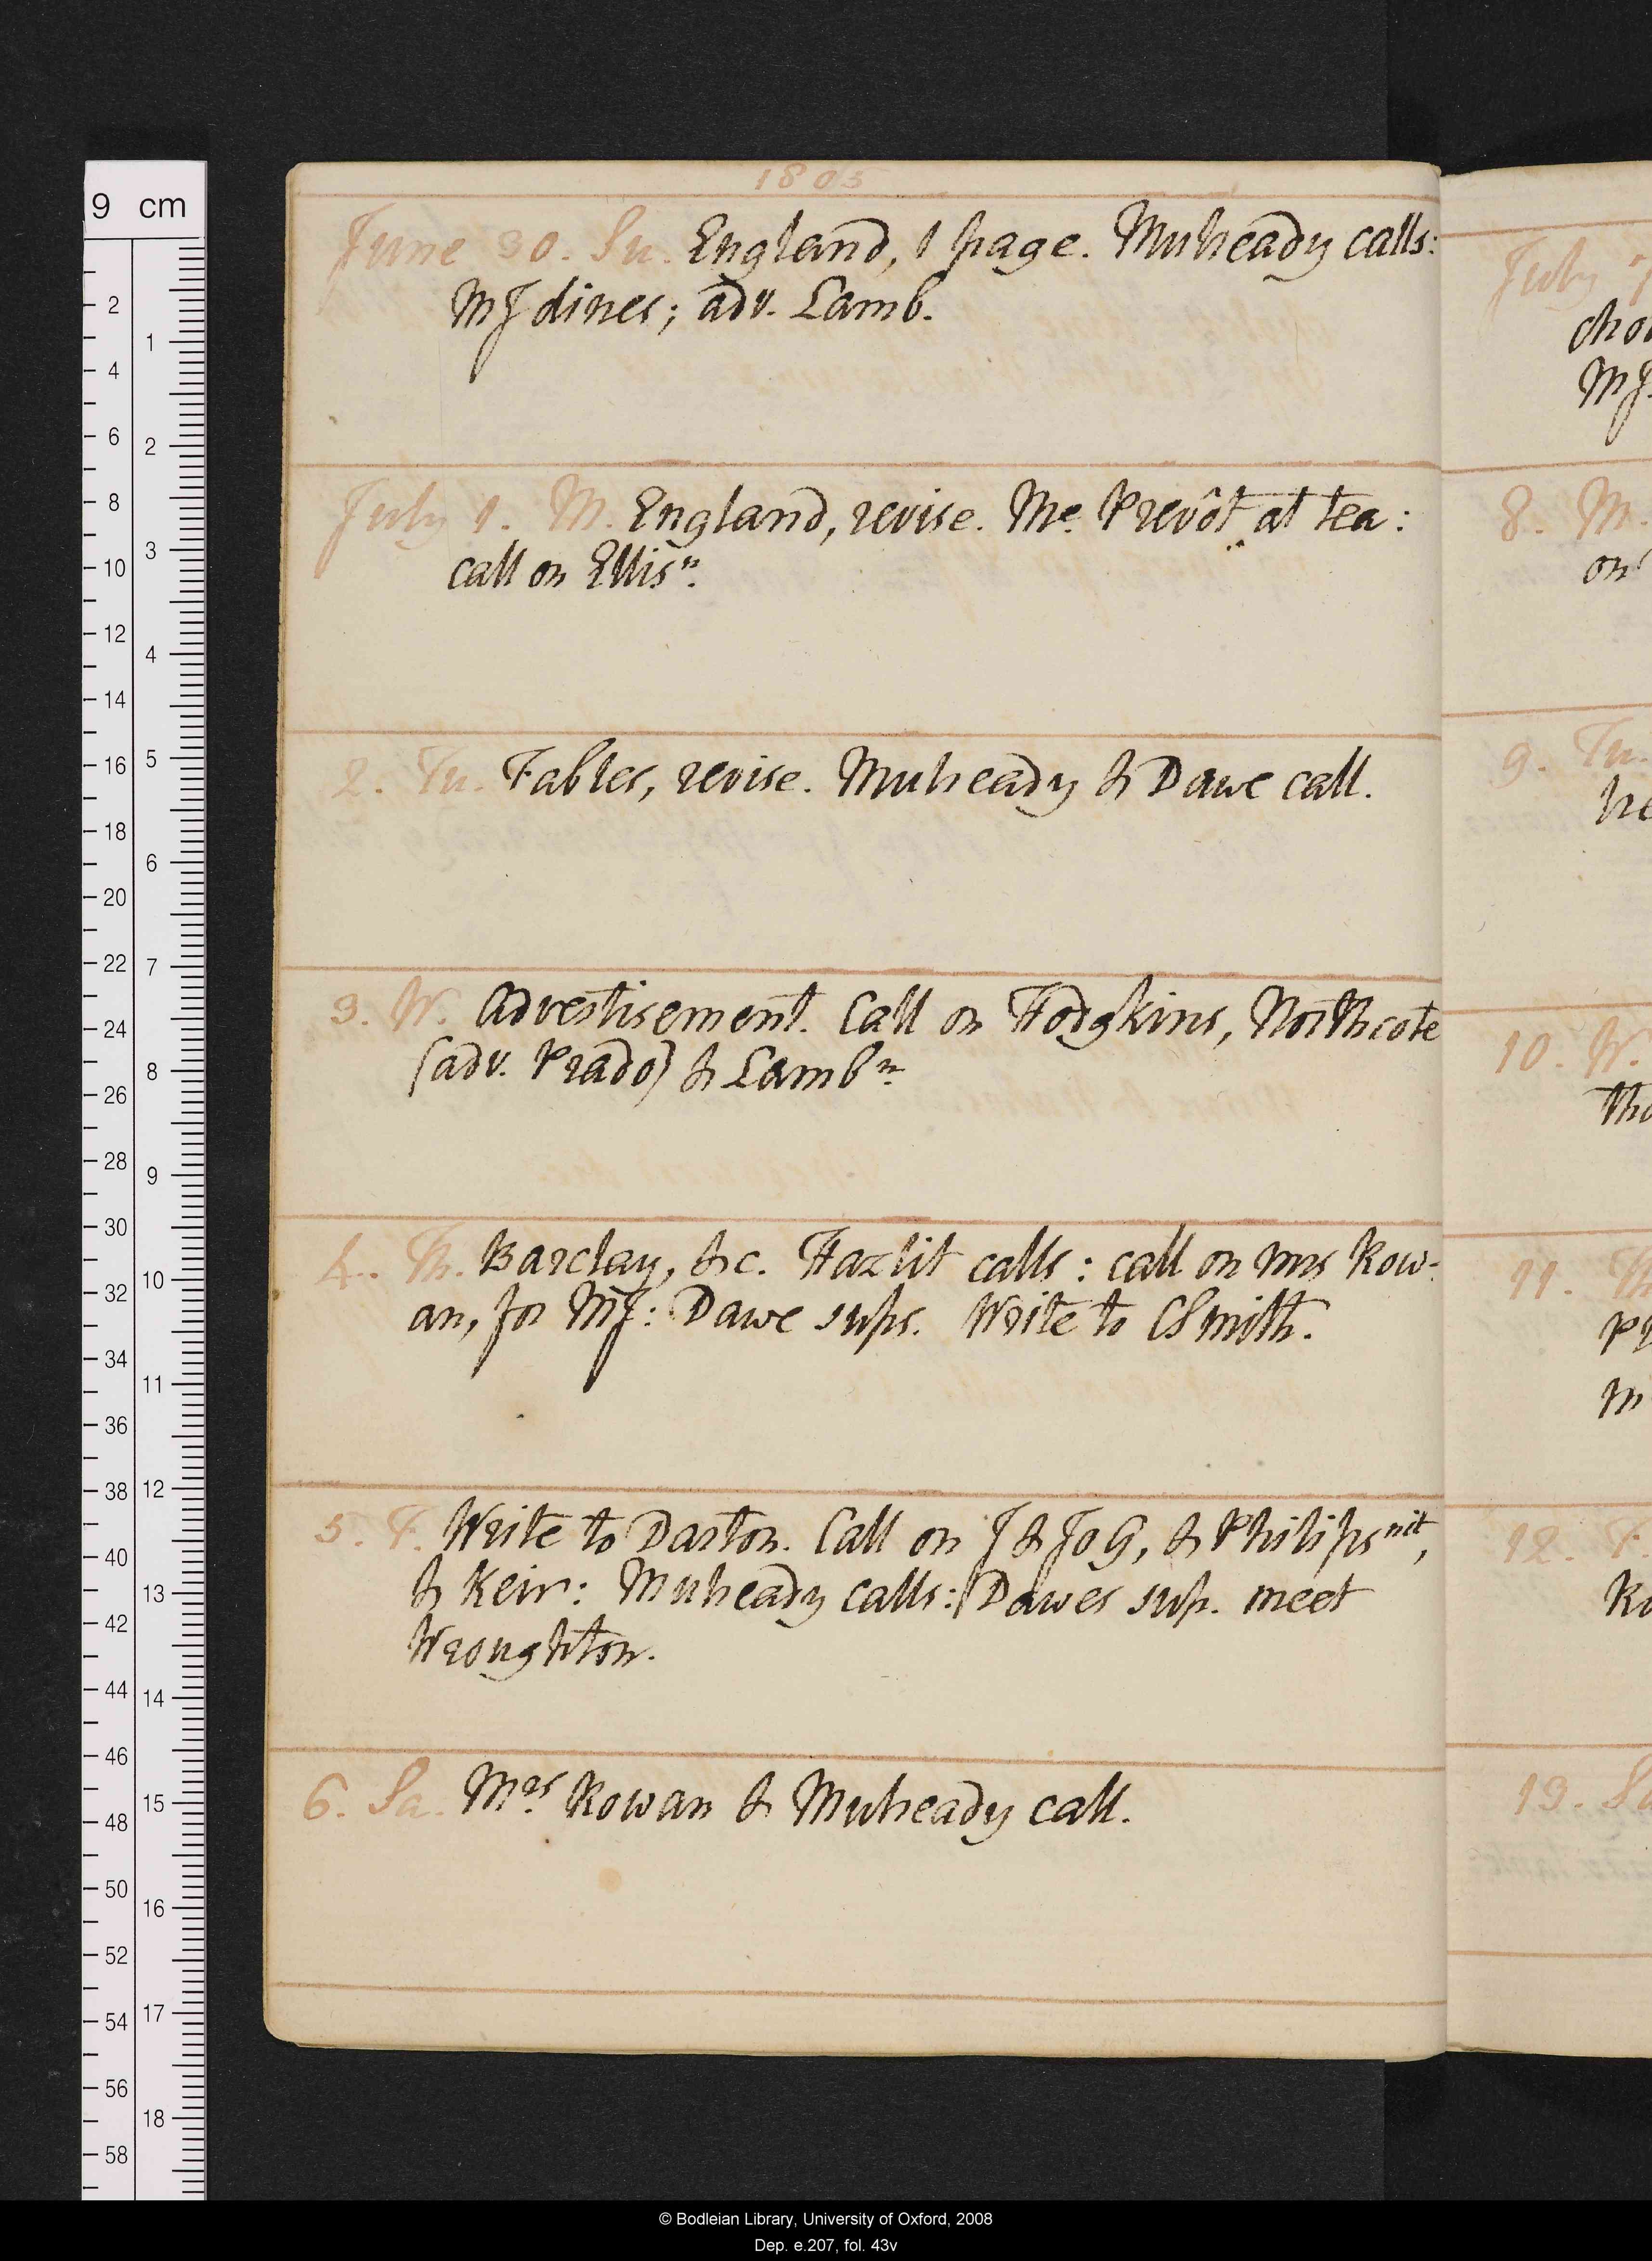 1805
June 30. Su. England, 1 page. Mulready calls:
MJ dines; adv. Lamb.
July 1. M. England, revise. Me. Prevôt at tea:
call on Ellisn.
2. Tu. Fables, revise. Mulready & Dawe call.
3. W. Advertisement. Call on Hodgkins, Northcote
(adv. Prado) & Lambn.
4. Th. Barclay, &c. Hazlit calls: call on mrs Row-
an, for MJ: Dawe sups. Write to CSmith.
5. F. Write to Darton. Call on J & JoG, & Philips nit,
& Keir: Mulready calls: Dawes sup. meet
Wroughton.
6. Sa. Mrs Rowan & Mulready call.
July 7
MJ.
8. M.
on
9. Tu.
he
10. W.
11. Th
12. F.
13. Sa
9 cm
2 4 6 8 10 12 14 16 18 20 22 24 26 28 30 32 34 36 38 40 42 44 46 48 50 52 54 56 58
1 2 3 4 5 6 7 8 9 10 11 12 13 14 15 16 17 18
© Bodleian Library, University of Oxford, 2008
Dep. e.207, fol. 43v